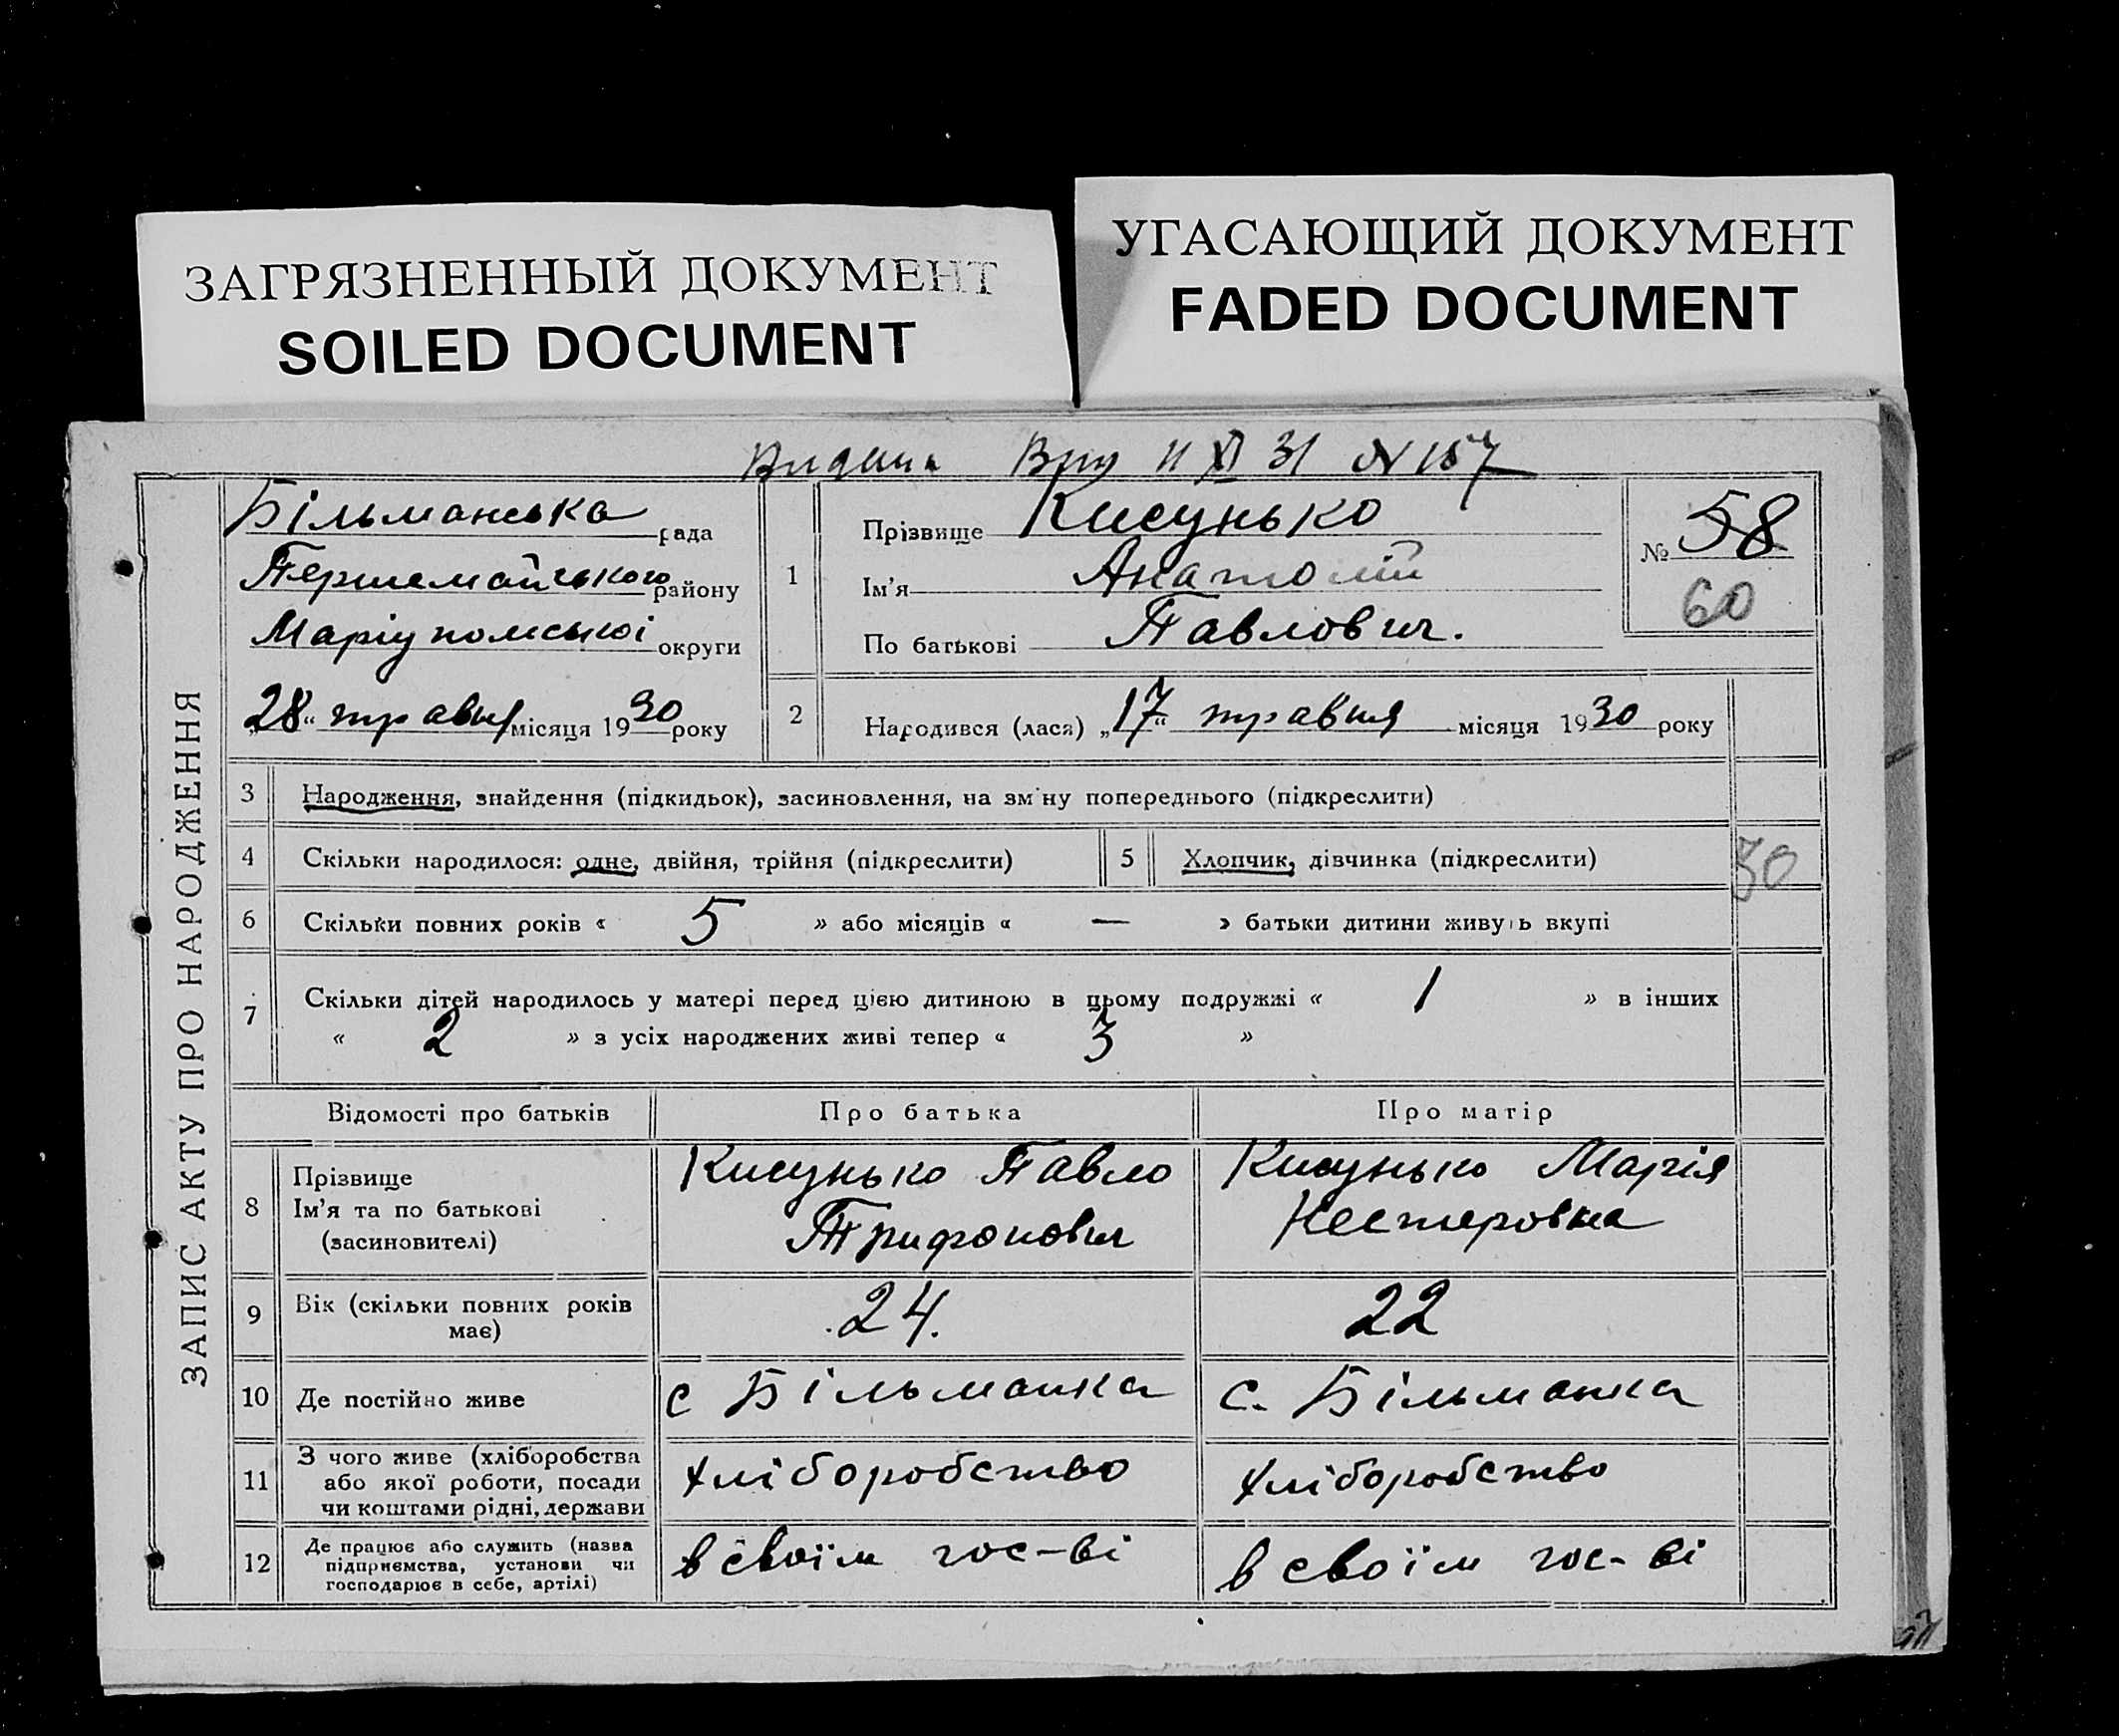 ЗАГРЯЗНЕННЫЙ ДОКУМЕНТ
SOILED DOCUMENT
УГАСАЮЩИЙ ДОКУМЕНТ
FADED DOCUMENT
Видана II XI 31 № 157
ЗАПИС АКТУ ПРО НАРОДЖЕННЯ
Більманська рада
Першемайського району
Маріупольської округи
„28“ травня місяця 1930 року
1
Прізвище Кисунько
Ім'я Анатолій
По батькові Павлович.
№ 58
60
2 Народився (лася) „17“ травня місяця 1930 року
3 Народження, знайдення (підкидьок), засиновлення, на зміну попереднього (підкреслити)
4 Скільки народилося: одне, двійня, трійня (підкреслити) 5 Хлопчик, дівчинка (підкреслити)
30
6 Скільки повних років « 5 » або місяців « — » батьки дитини живуть вкупі
7 Скільки дітей народилось у матері перед цією дитиною в цьому подружжі « 1 » в інших
« 2 » з усіх народжених живі тепер « 3 »
Відомості про батьків Про батька Про матір
8 Прізвище
Ім'я та по батькові
(засиновителі)
Кисунько Павло
Трифонович
Кисунько Марія
Нестеровна
9 Вік (скільки повних років
має)
24.
22
10 Де постійно живе с Більманка с. Більманка
11 З чого живе (хліборобства
або якої роботи, посади
чи коштами рідні, держави
хліборобство
хліборобство
12 Де працює або служить (назва
підприємства, установи чи
господарює в себе, артілі)
в своїм гос-ві
в своїм гос-ві